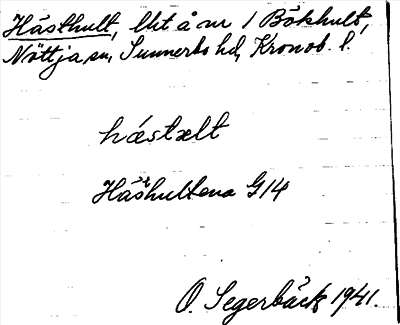 Hästhult, lht å nr 1 Bökhult,
Nöttja sn, Sunnerbo hd, Kronob. l.
hástælt
Hästhultena G14
O. Segerbäck 1941.